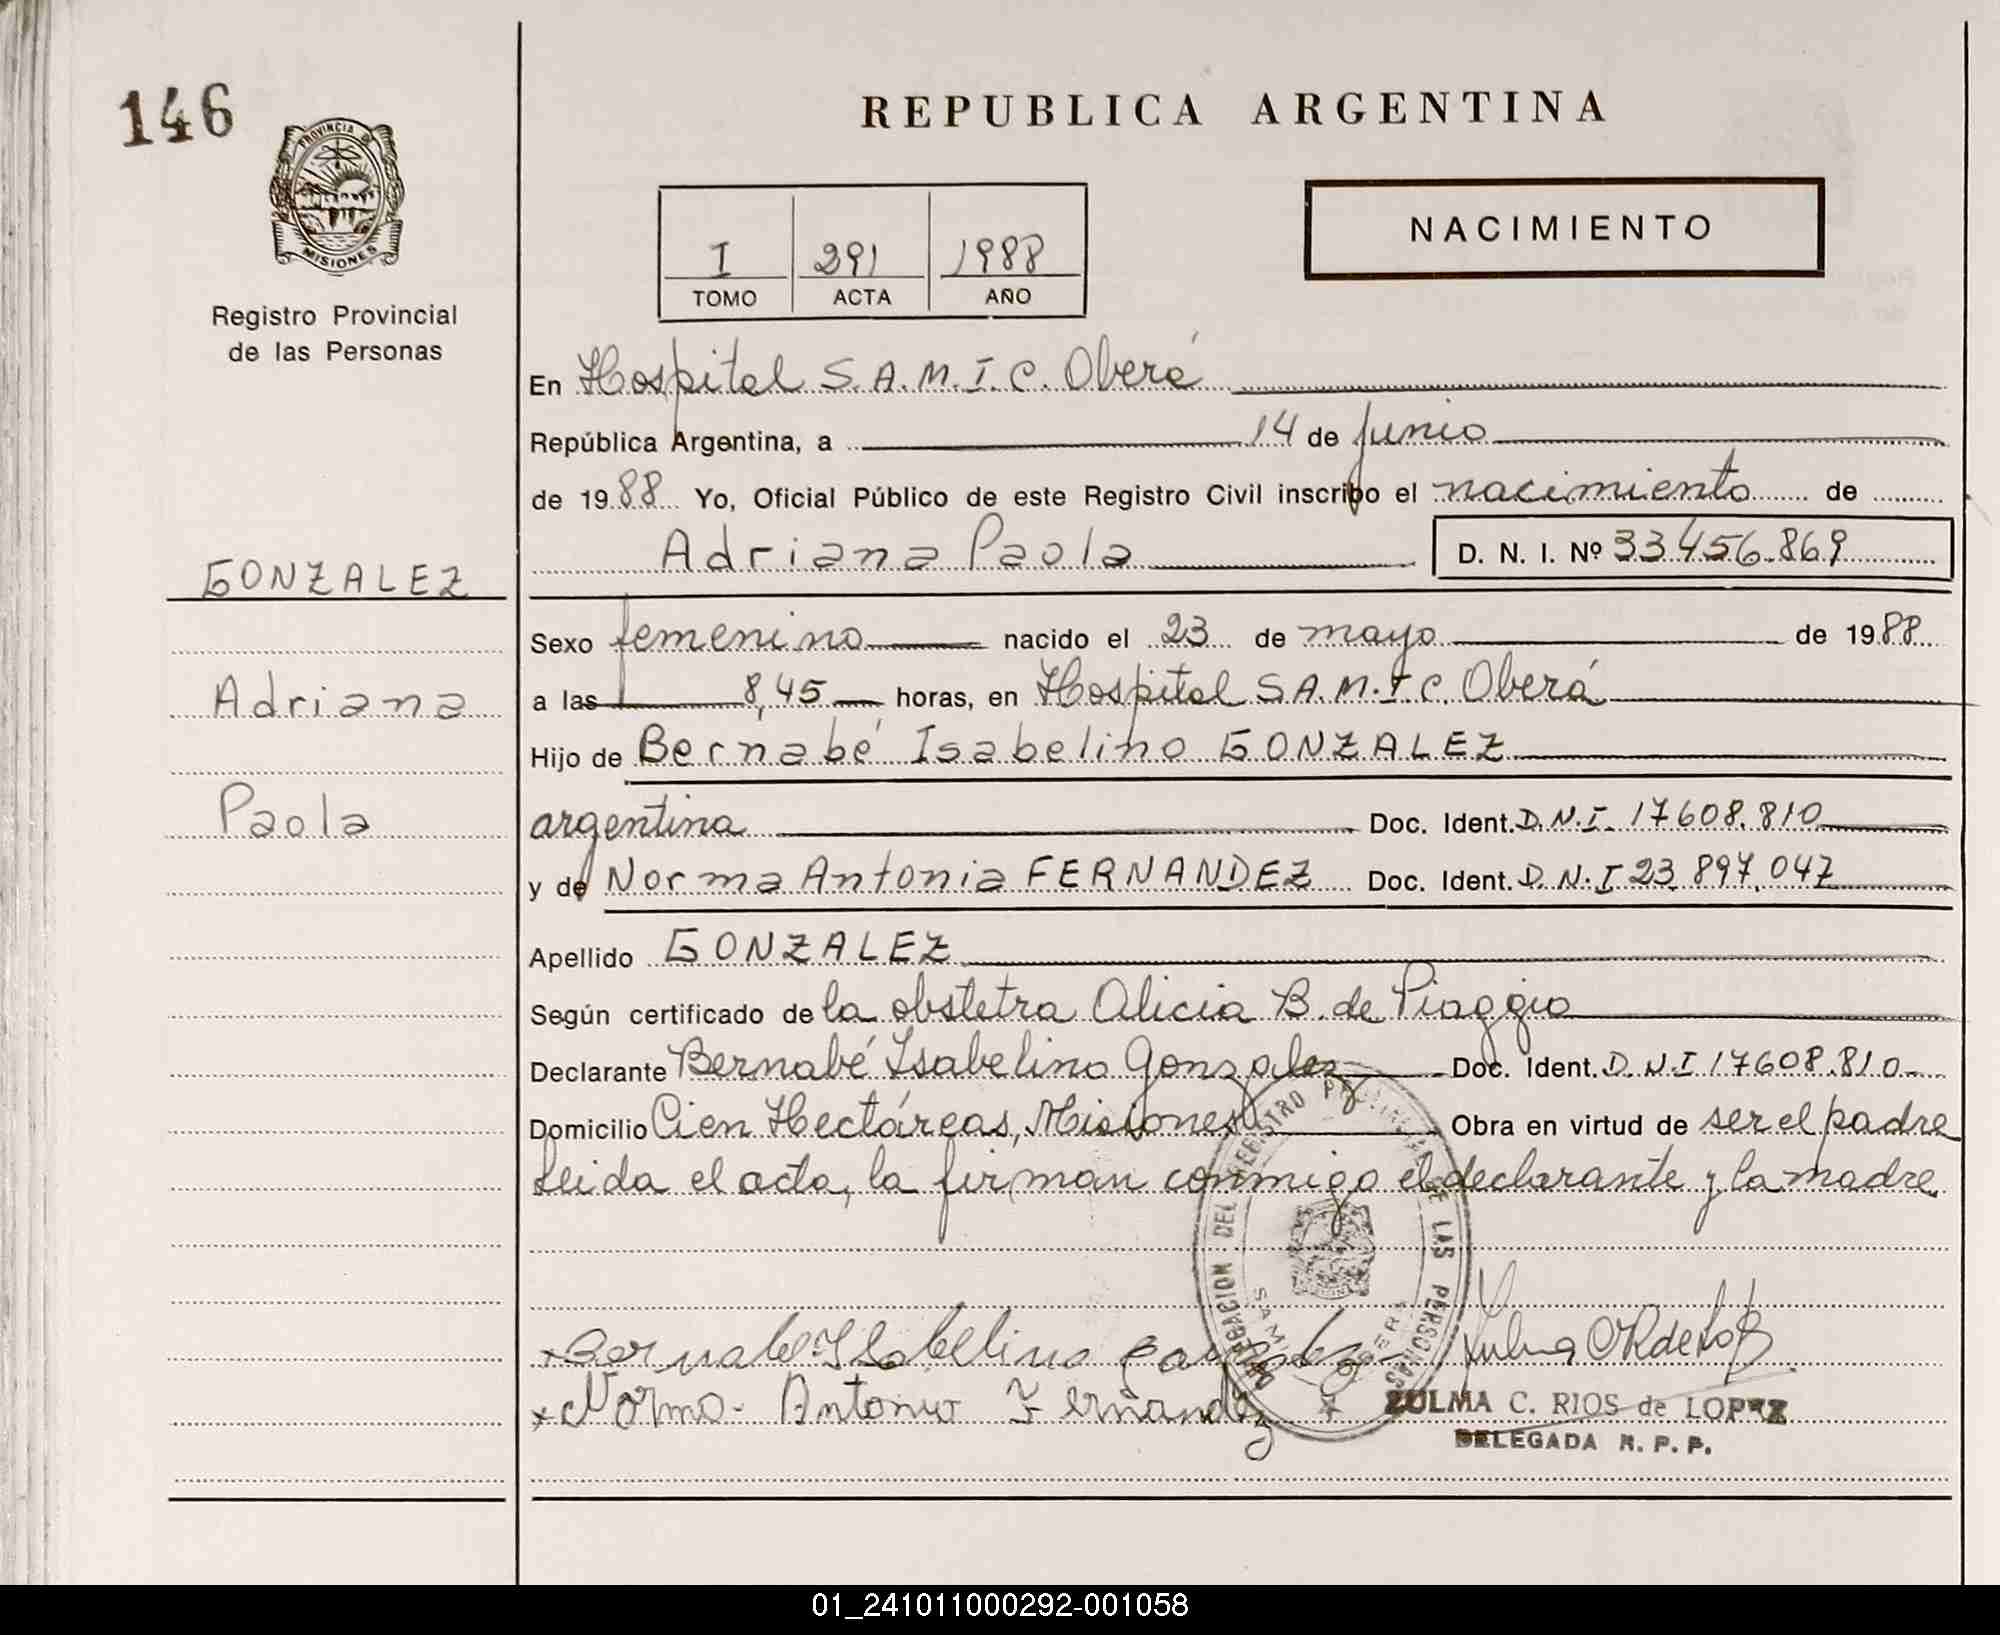 146
REPUBLICA ARGENTINA
PROVINCIA DE
MISIONES
Registro Provincial
de las Personas
I 291 1988
TOMO ACTA AÑO
NACIMIENTO
En Hospital S.A.M.I.C. Oberá
República Argentina, a 14 de junio
de 1988 Yo, Oficial Público de este Registro Civil inscribo el nacimiento de
Adriana Paola D. N. I. Nº 33.456.869
GONZALEZ
Adriana
Paola
Sexo femenino nacido el 23 de mayo de 1988
a las 8,45 horas, en Hospital S.A.M.I.C. Oberá
Hijo de Bernabé Isabelino GONZALEZ
argentina Doc. Ident. D.N.I. 17608.810
y de Norma Antonia FERNANDEZ Doc. Ident. D.N.I 23.897.047
Apellido GONZALEZ
Según certificado de la obstetra Alicia B. de Piaggio
Declarante Bernabé Isabelino Gonzalez Doc. Ident. D.N.I 17608.810
Domicilio Cien Hectáreas, Misiones Obra en virtud de ser el padre
Leida el acta, la firman conmigo el declarante y la madre
DELEGACION DEL REGISTRO PROVINCIAL DE LAS PERSONAS
OBERA
x Bernabe Isabelino Gonzalez
x Norma Antonia Fernandez
ZULMA C. RIOS de LOPEZ
DELEGADA R. P. P.
01_241011000292-001058